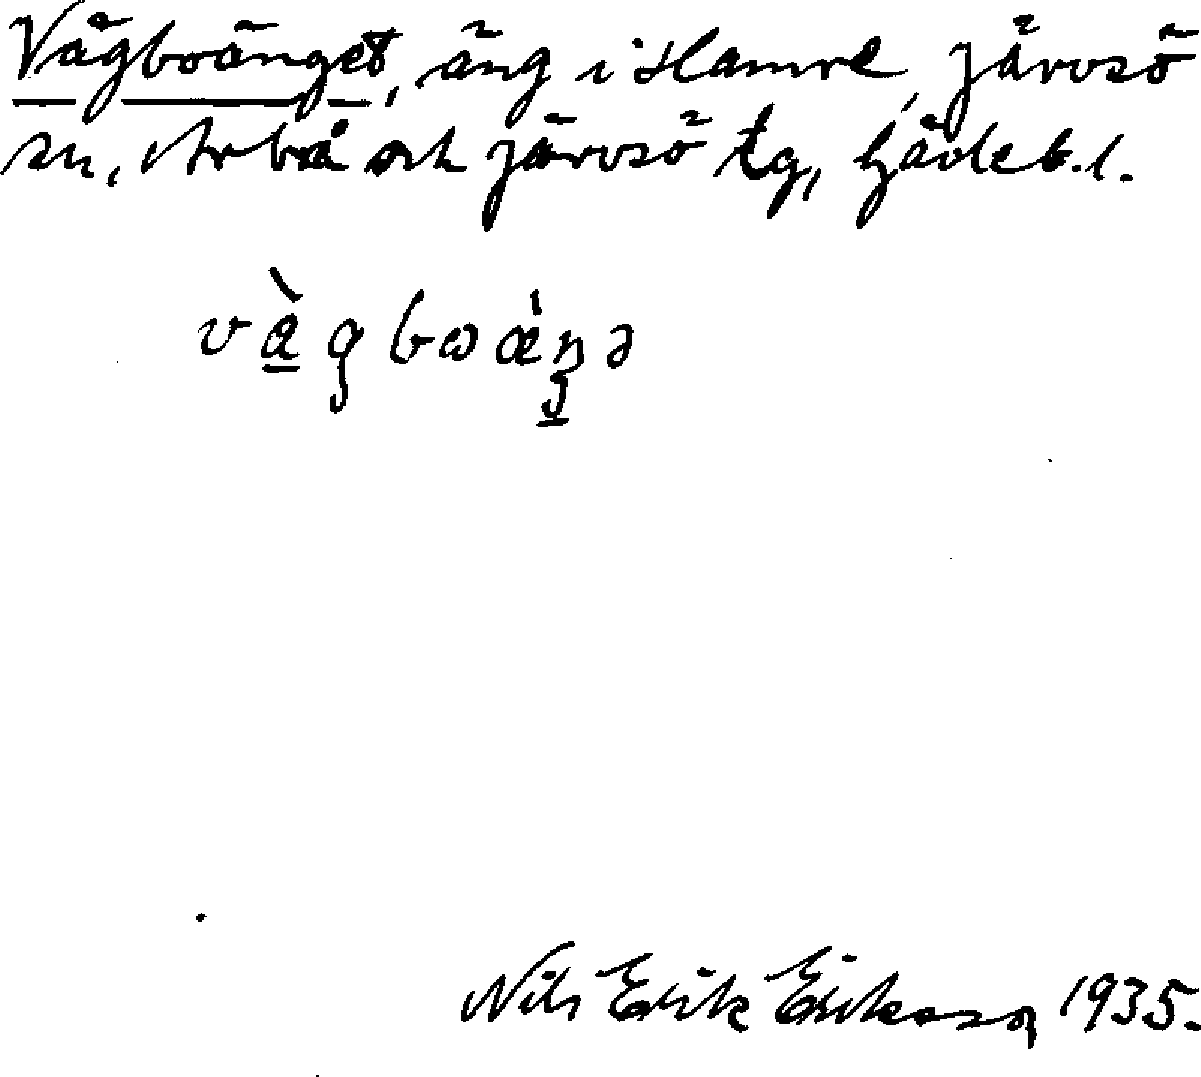 Vägboänget, äng i Hamre, Järvsö
sn, Arbrå och Järvsö tg, Gävleb. l.
vàgbωæ̀ŋə
Nils Erik Eriksson 1935.